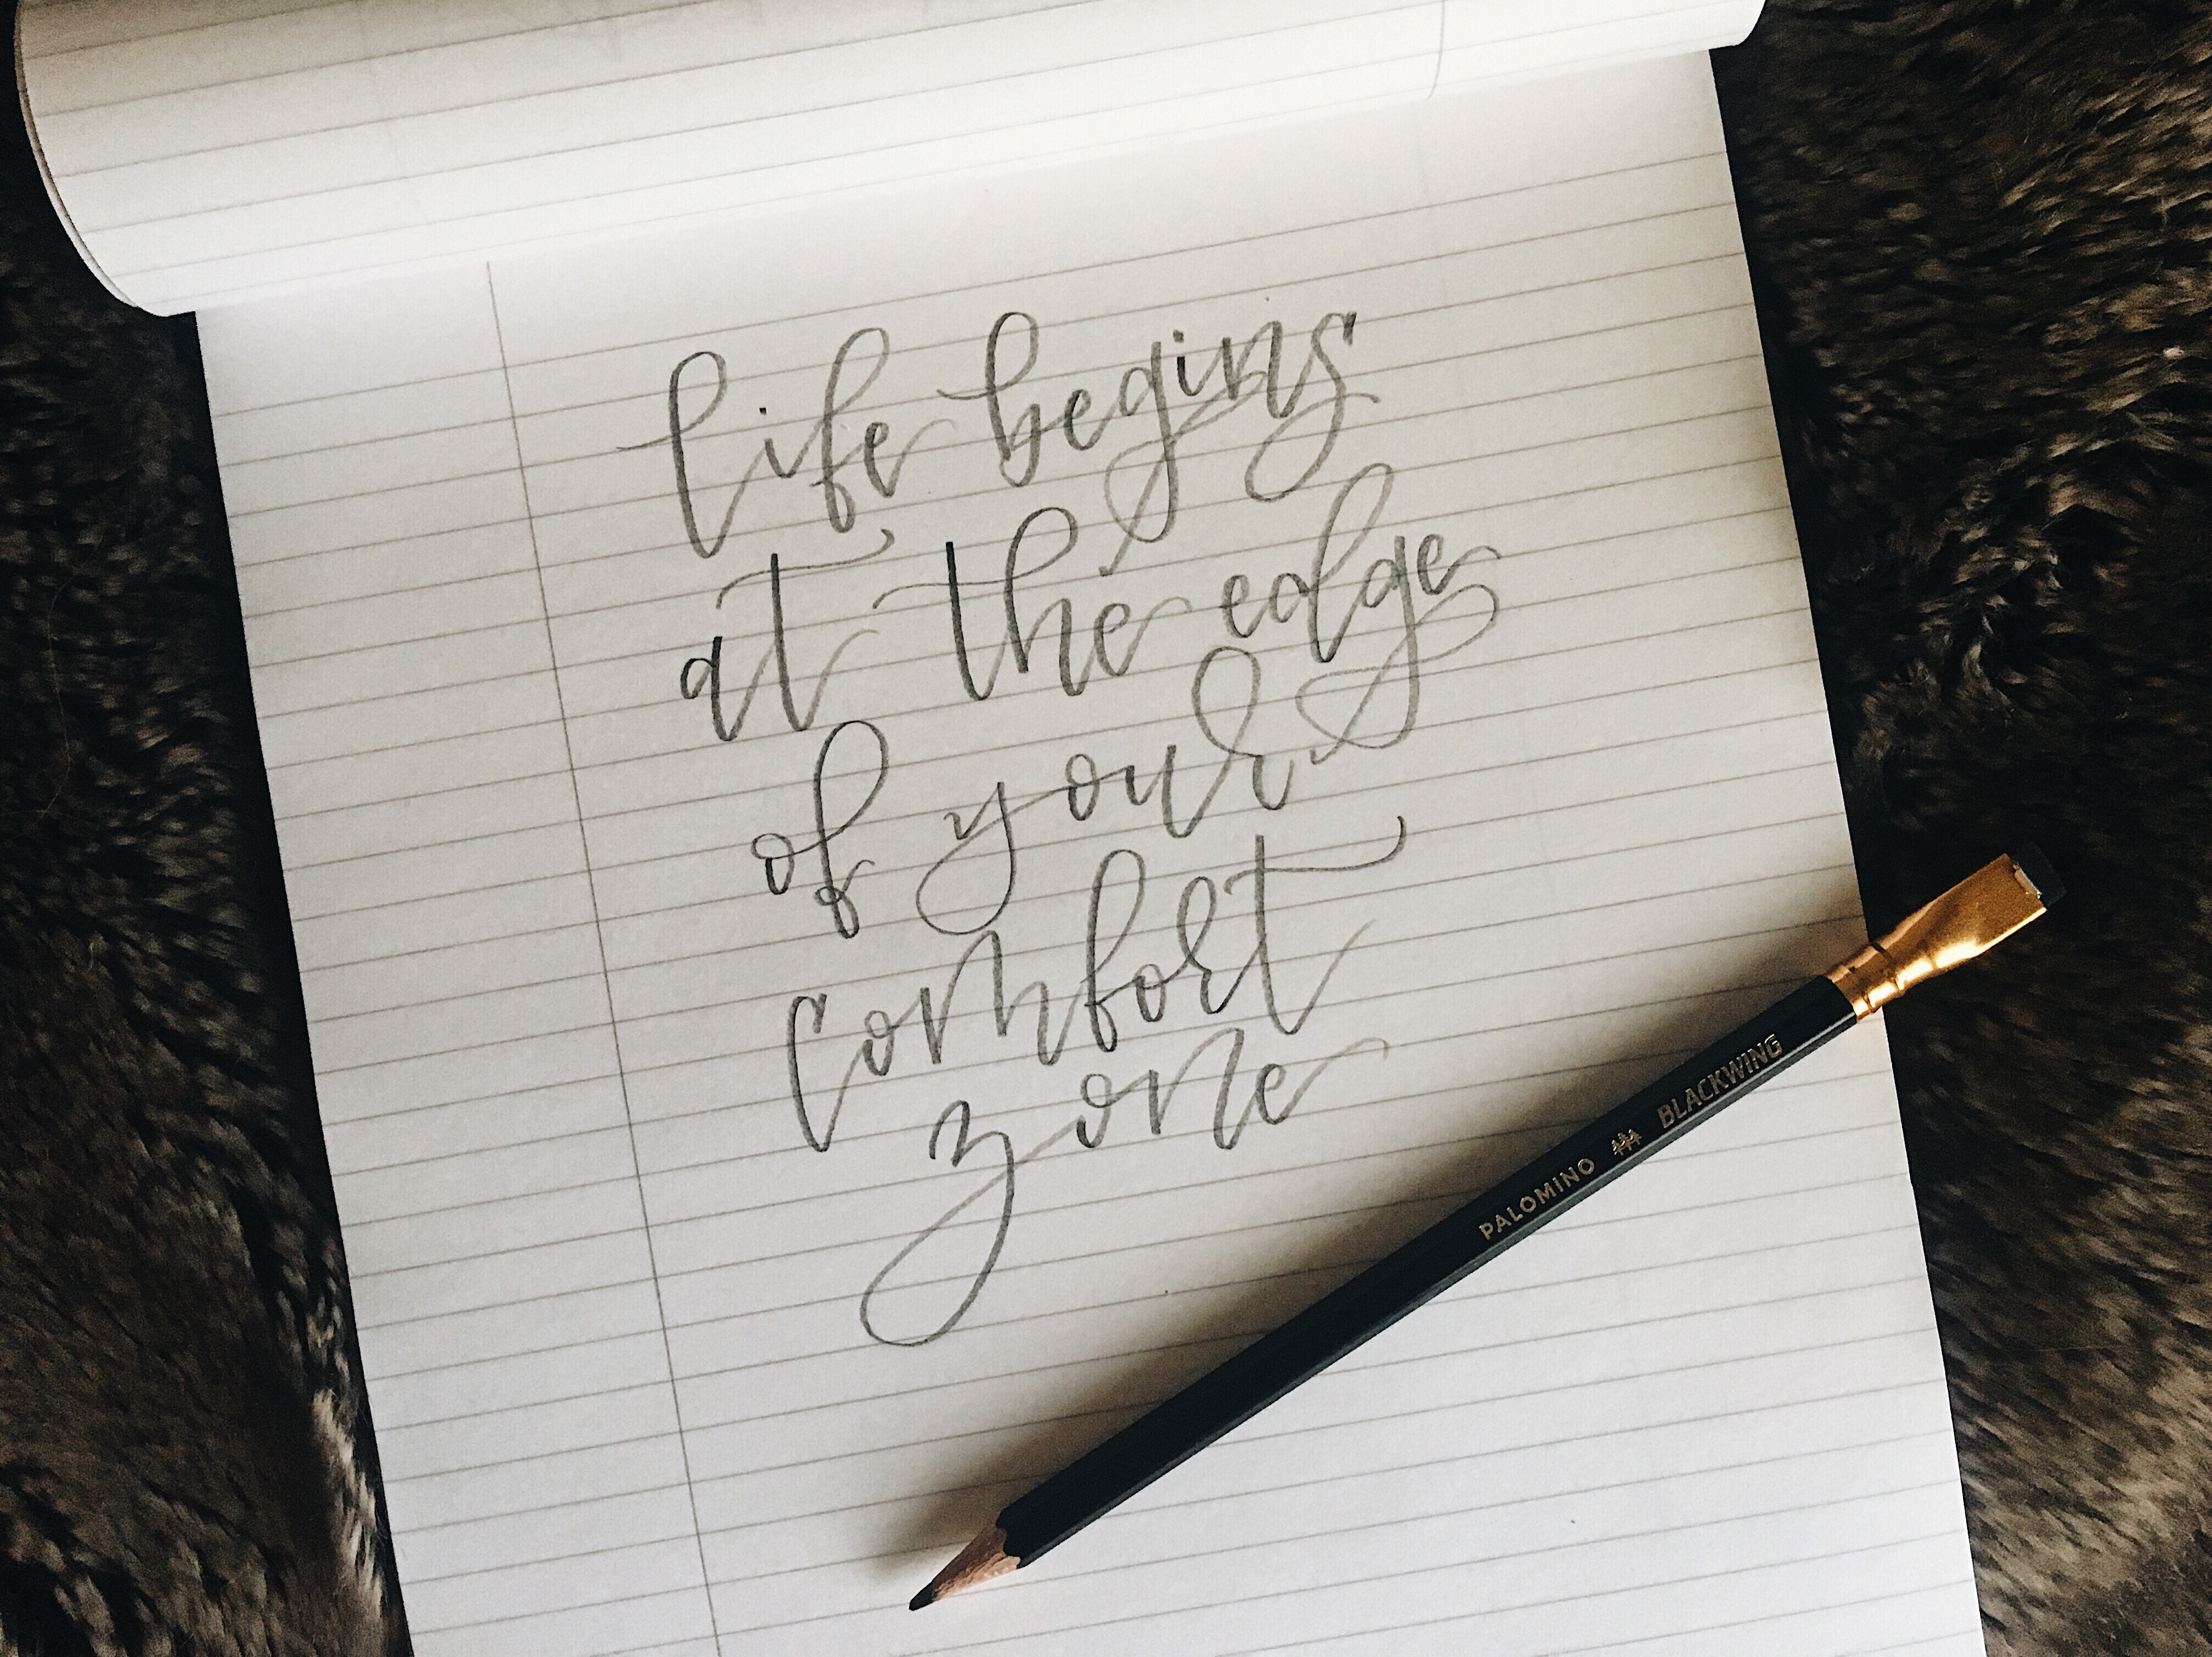 life begins
at the edge
of your
comfort
zone
PALOMINO BLACKWING